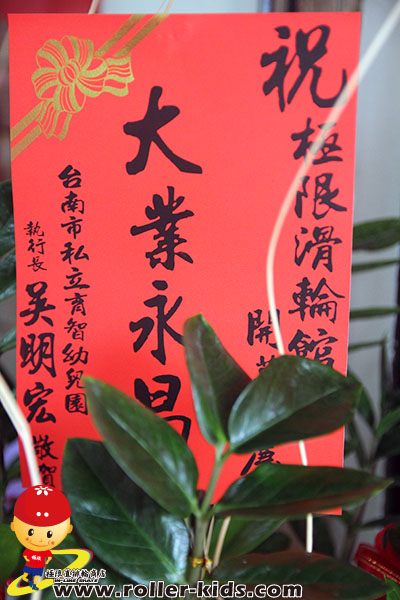 祝極限滑輪館
開
大業永昌
台南市私立育智幼兒園
執行長 吳明宏 敬賀
www.roller-kids.com